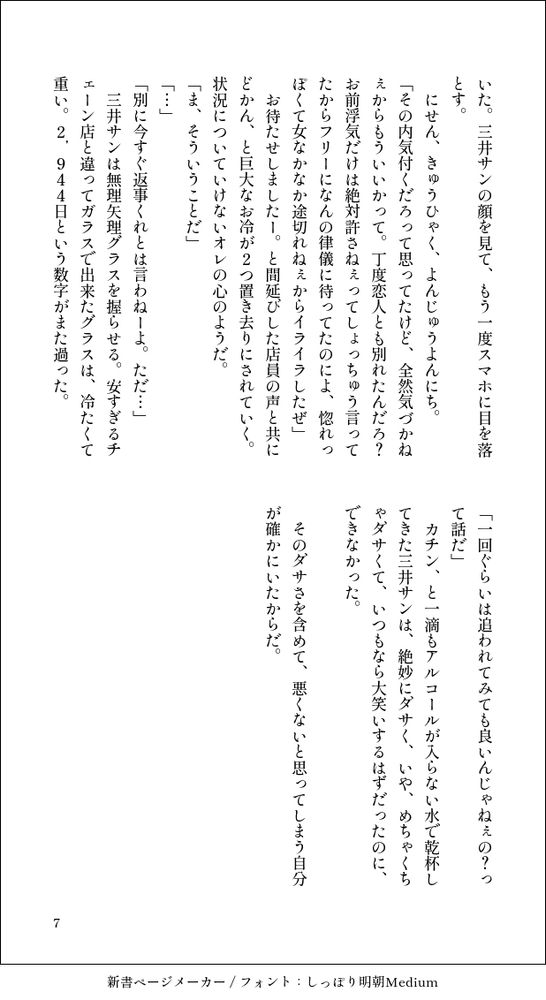 いた。三井サンの顔を見て、もう一度スマホに目を落
とす。
　にせん、きゅうひゃく、よんじゅうよんにち。
「その内気付くだろって思ってたけど、全然気づかね
ぇからもういいかって。丁度恋人とも別れたんだろ？
お前浮気だけは絶対許さねぇってしょっちゅう言って
たからフリーになんの律儀に待ってたのによ、惚れっ
ぽくて女なかなか途切れねぇからイライラしたぜ」
　お待たせしましたー。と間延びした店員の声と共に
どかん、と巨大なお冷が２つ置き去りにされていく。
状況についていけないオレの心のようだ。
「ま、そういうことだ」
「…」
「別に今すぐ返事くれとは言わねーよ。ただ…」
　三井サンは無理矢理グラスを握らせる。安すぎるチ
ェーン店と違ってガラスで出来たグラスは、冷たくて
重い。２，９４４日という数字がまた過った。
「一回ぐらいは追われてみても良いんじゃねぇの？っ
て話だ」
　カチン、と一滴もアルコールが入らない水で乾杯し
てきた三井サンは、絶妙にダサく、いや、めちゃくち
ゃダサくて、いつもなら大笑いするはずだったのに、
できなかった。
　そのダサさを含めて、悪くないと思ってしまう自分
が確かにいたからだ。
7
新書ページメーカー / フォント：しっぽり明朝Medium